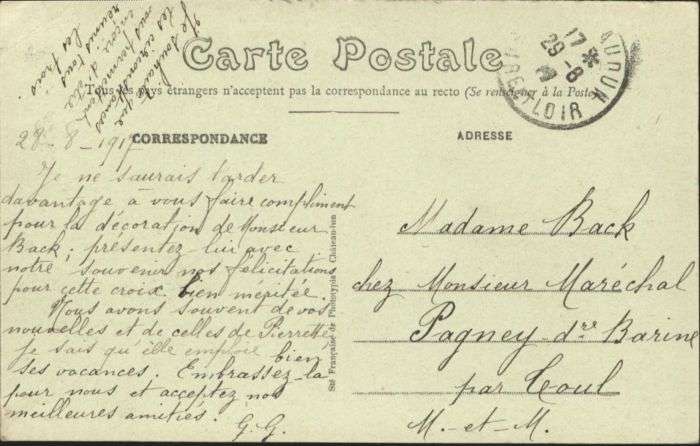 Je souhaite que
les circonstances
nous permettent
encore d'être
réunis tous
les trois
Carte Postale
Tous les pays étrangers n'acceptent pas la correspondance au recto (Se renseigner à la Poste)
17 *
29-8
EURE-&-LOIR
CORRESPONDANCE
ADRESSE
28-8-1917
Je ne saurais tarder
davantage à vous faire compliment
pour la décoration de Monsieur
Back; présentez-lui avec
notre souvenir nos félicitations
pour cette croix bien méritée.
Nous avons souvent de vos
nouvelles et de celles de Pierrette
Je sais qu'elle emploie bien
ses vacances. Embrassez-la
pour nous et acceptez nos
meilleures amitiés.
G.G.
Sté Française de Phototypie, Châteaudun
Madame Back
chez Monsieur Maréchal
Pagney-dre Barine
par Toul
M.-et-M.